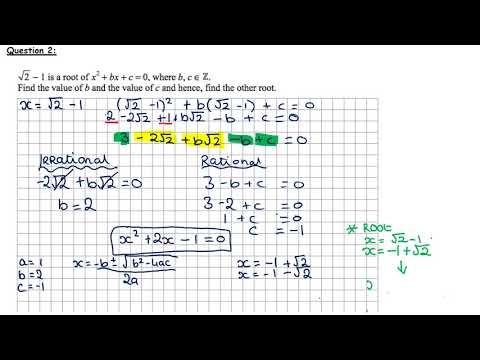 Question 2:
√2 − 1 is a root of x² + bx + c = 0, where b, c ∈ ℤ.
Find the value of b and the value of c and hence, find the other root.
x = √2 − 1 (√2 − 1)² + b(√2 − 1) + c = 0
2 − 2√2 + 1 + b√2 − b + c = 0
3 − 2√2 + b√2 − b + c = 0
Irrational Rational
−2√2 + b√2 = 0 3 − b + c = 0
b = 2 3 − 2 + c = 0
1 + c = 0
c = −1
x² + 2x − 1 = 0
* ROOT:
x = √2 − 1
x = −1 + √2
↓
a = 1
b = 2
c = −1
x = −b ± √b² − 4ac
2a
x = −1 + √2
x = −1 − √2